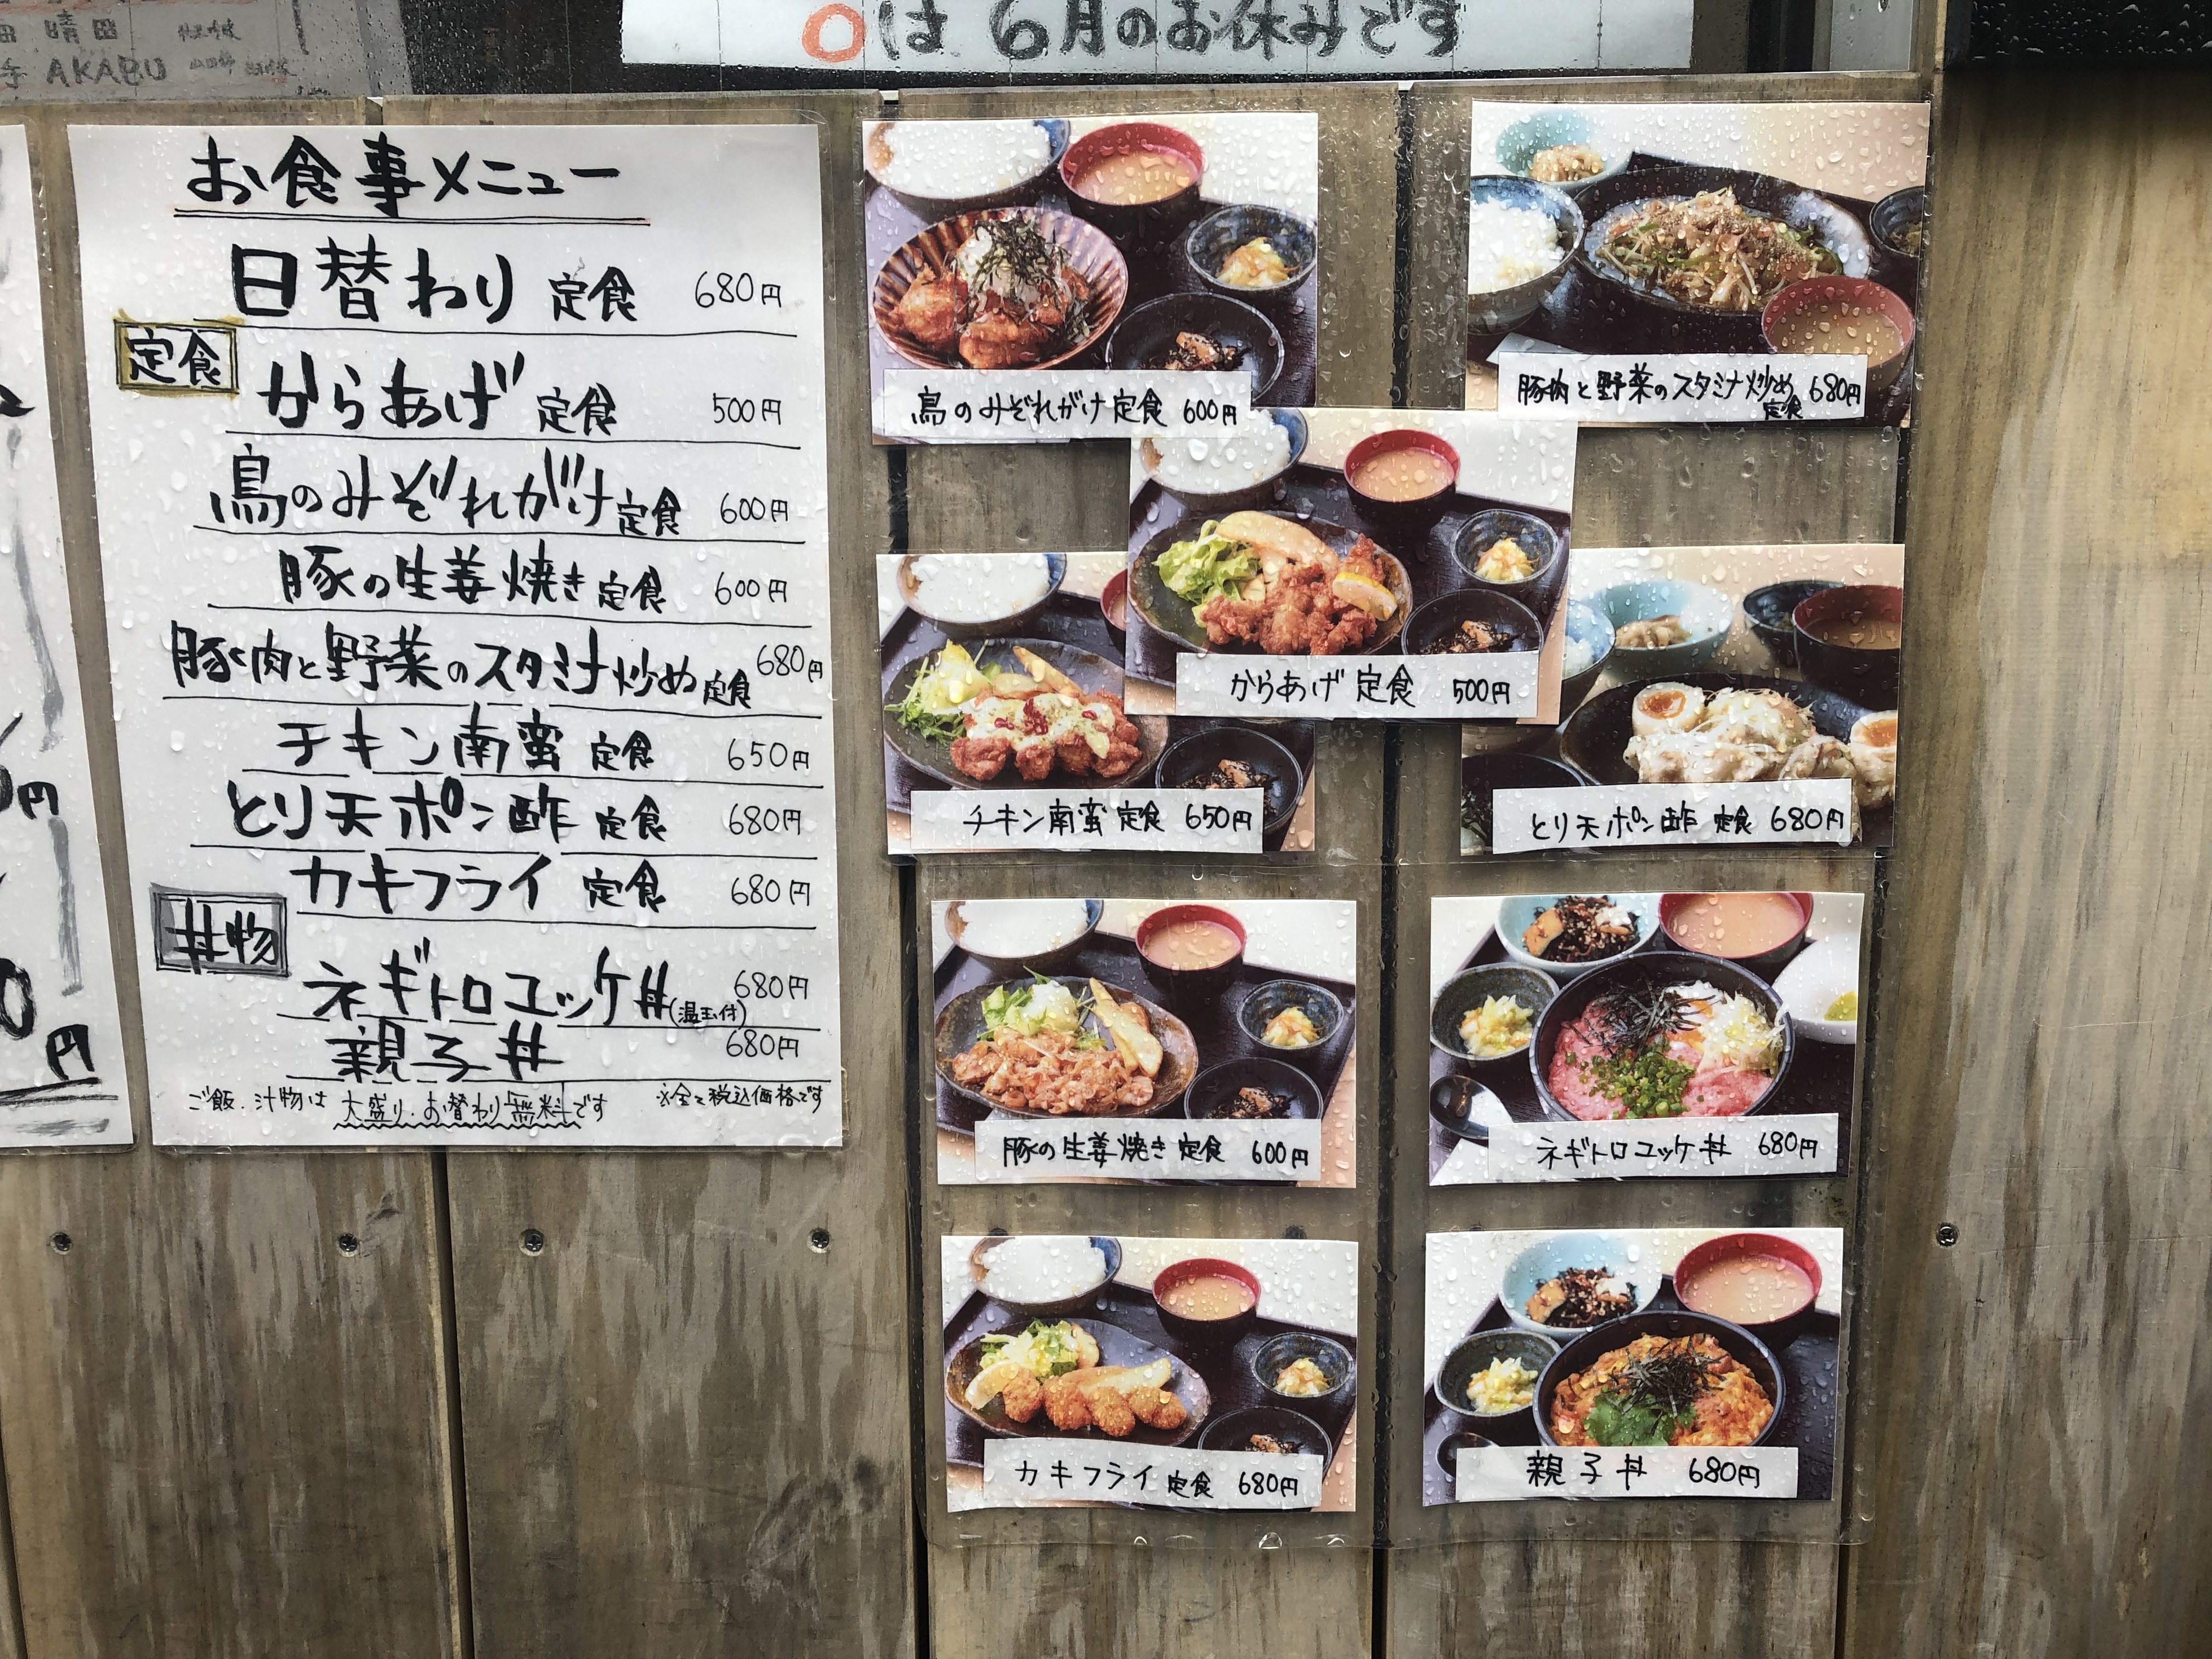 晴田
AKABU
○は6月のお休みです
お食事メニュー
日替わり定食 680円
定食
からあげ定食 500円
鳥のみぞれがけ定食 600円
豚の生姜焼き定食 600円
豚肉と野菜のスタミナ炒め定食 680円
チキン南蛮定食 650円
とり天ポン酢定食 680円
カキフライ定食 680円
丼物
ネギトロユッケ丼(温玉付) 680円
親子丼 680円
ご飯.汁物は大盛り.お替わり無料です
※全て税込価格です
円
円
鳥のみぞれがけ定食 600円
豚肉と野菜のスタミナ炒め定食 680円
からあげ定食 500円
チキン南蛮定食 650円
とり天ポン酢定食 680円
豚の生姜焼き定食 600円
ネギトロユッケ丼 680円
カキフライ定食 680円
親子丼 680円